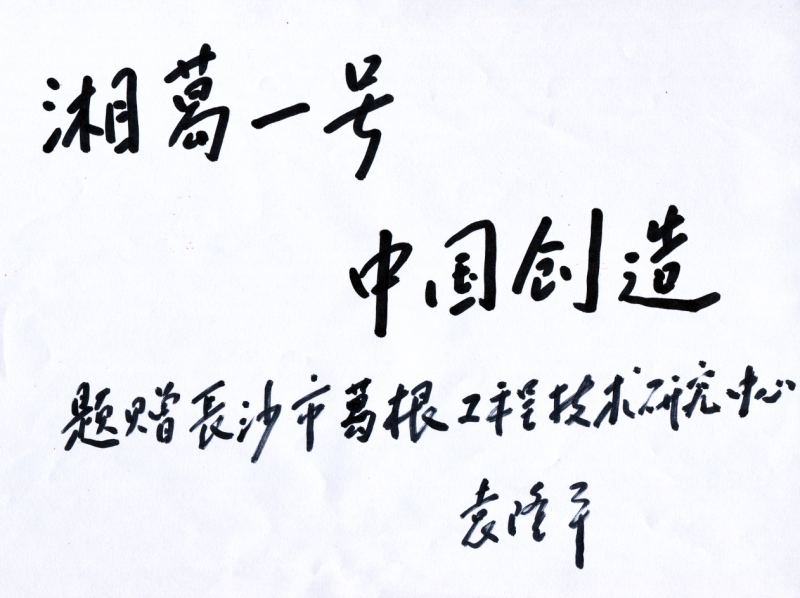 湘葛一号
中国创造
题赠長沙市葛根工程技术研究中心
袁隆平